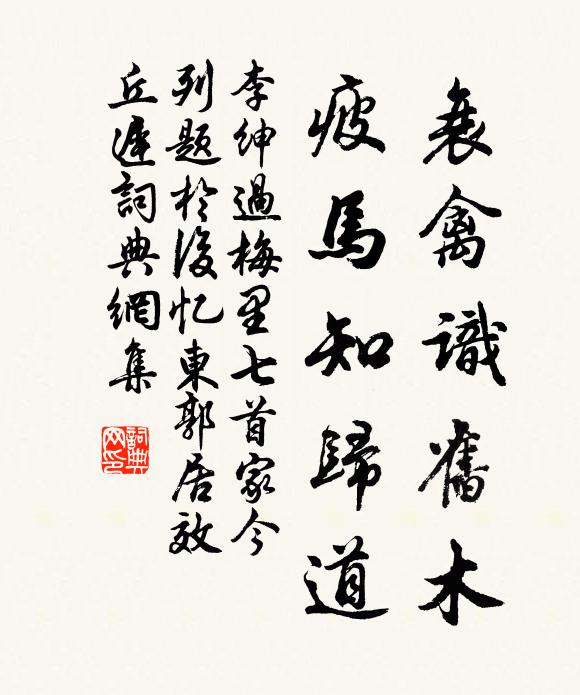 衰禽識舊木
疲馬知歸道
李紳過梅里七首家今
列題於後忆東郭居效
丘遲詞典網集
詞典网印